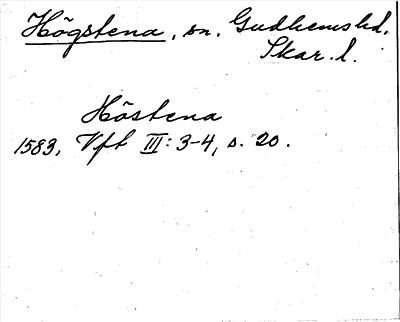 Högstena, sn. Gudhems hd.
Skar. l.
Höstena
1583, Vft III: 3-4, s. 20.